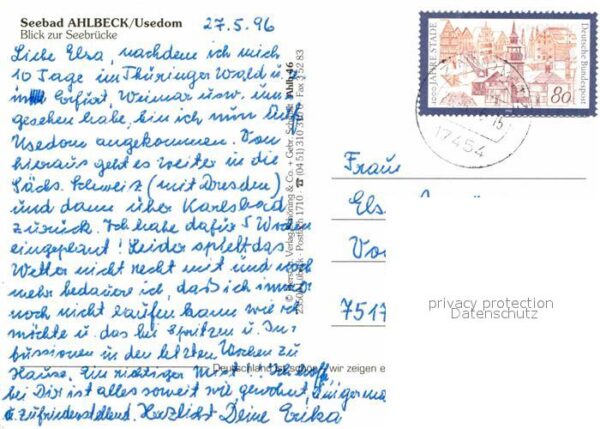 Seebad AHLBECK/Usedom
Blick zur Seebrücke
27.5.96
Liebe Elsa, nachdem ich mich
10 Tage im Thüringer Wald u.
in Erfurt, Weimar usw. um-
gesehen habe, bin ich nun auf
Usedom angekommen. Von
hieraus geht es weiter in die
Sächs. Schweiz (mit Dresden)
und dann über Karlsbad
zurück. Ich habe dafür 5 Wochen
eingeplant! Leider spielt das
Wetter nicht recht mit und noch
mehr bedauere ich, daß ich immer
noch nicht laufen kann wie ich
möchte u. das bei Spritzen u. In-
fussionen in den letzten Wochen zu
Hause. Ein richtiger Mist!! Ich hoffe,
bei Dir ist alles soweit wie gewohnt, einigerma
zufriedenstellend. Herzlichst Deine Erika
© Herst. u. Verlag Schöning & Co. + Gebr. Schmidt
Ahlb 16
Lübeck · Postfach 1710 · ☎ (04 51) 310 310 · Fax 3 52 83
Deutschland ist schön - wir zeigen e
1000 JAHRE STADE
Deutsche Bundespost
80
17454
Fraue
Els
Vo
7517
privacy protection
Datenschutz